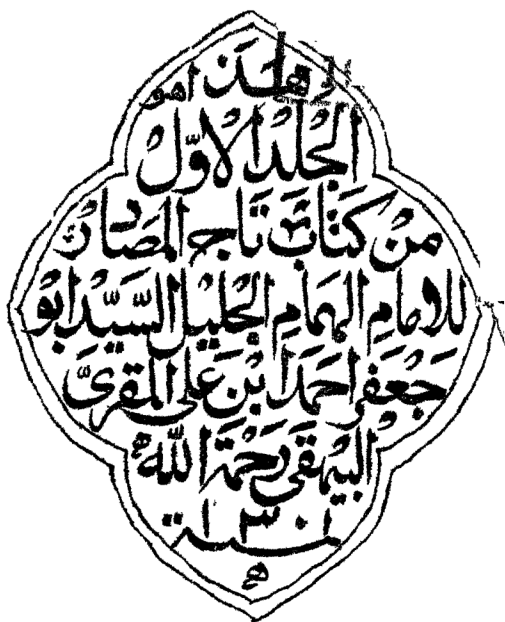 هذا هو
الجلد الاول
من كتاب تاج المصادر
للامام الهمام الجليل السيد ابو
جعفر احمد ابن على المقرى
البيهقى رحمة الله
لسنة ١٣٠١